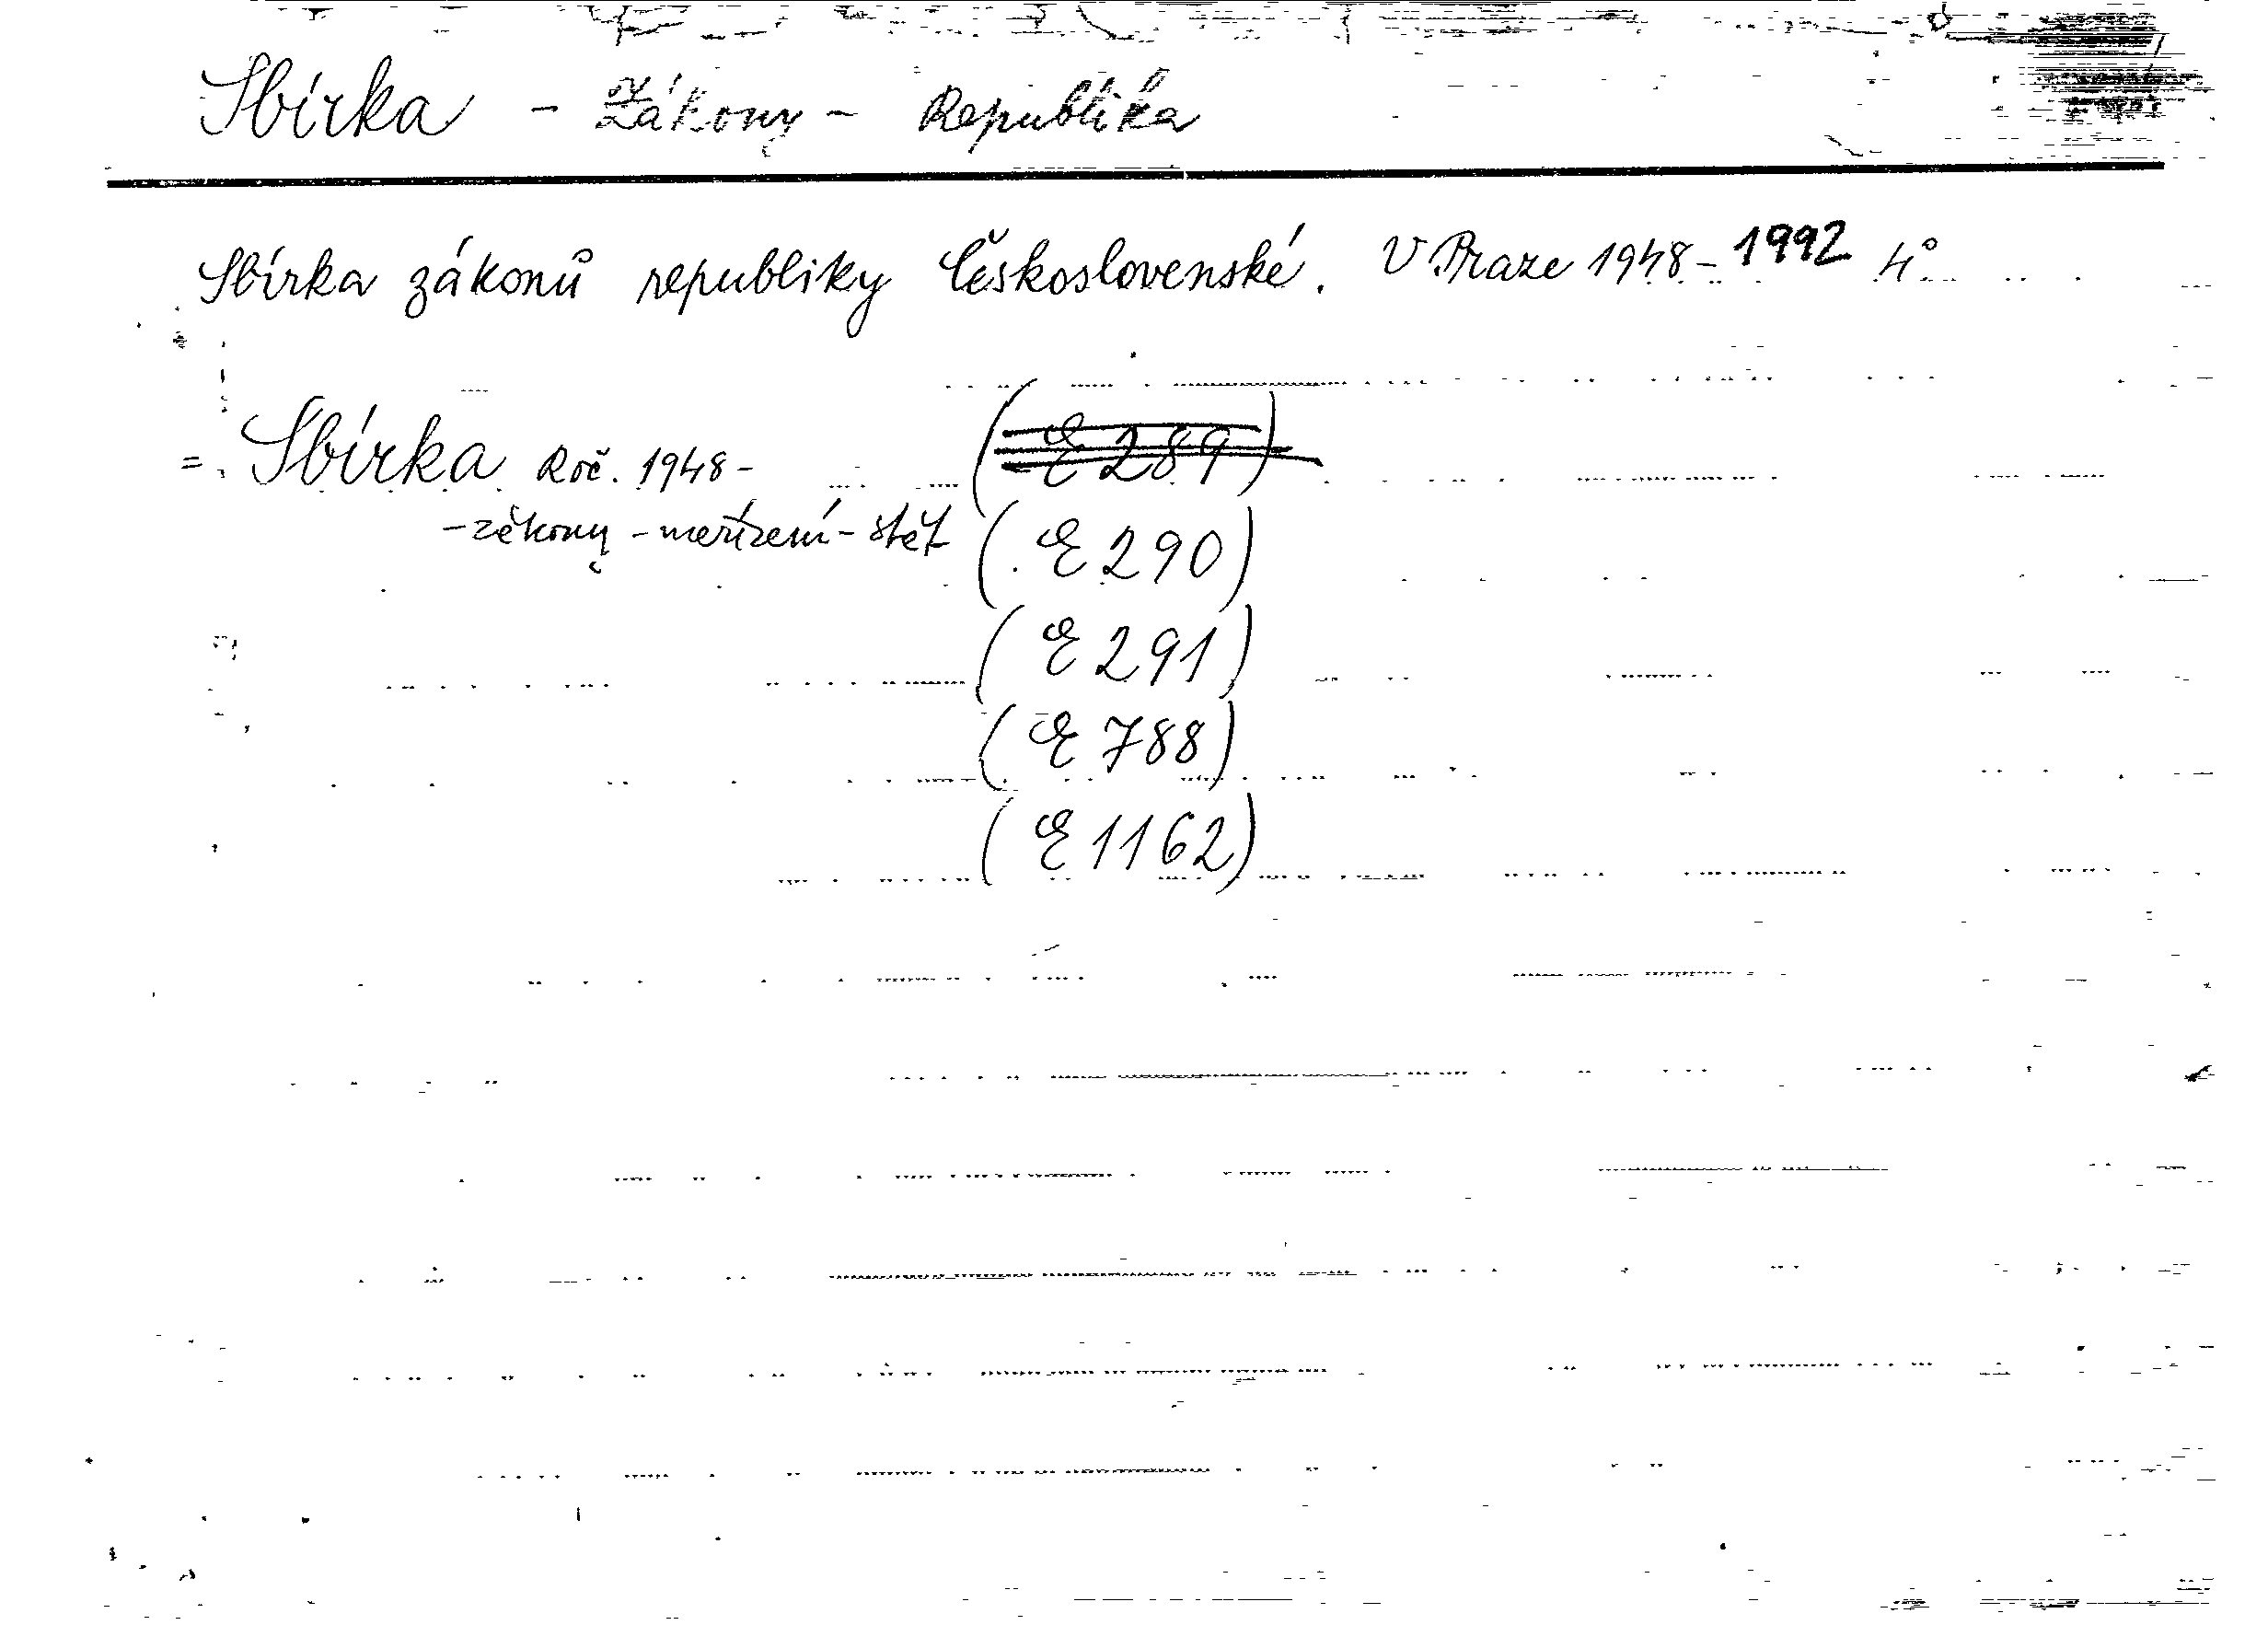 Sbírka - Zákony - Republika
Sbírka zákonů republiky Československé. V Praze 1948-1992 4°
= Sbírka Roč. 1948- (E 289)
-zákony -nařízení- stát (E 290)
(E 291)
(E 788)
(E 1162)